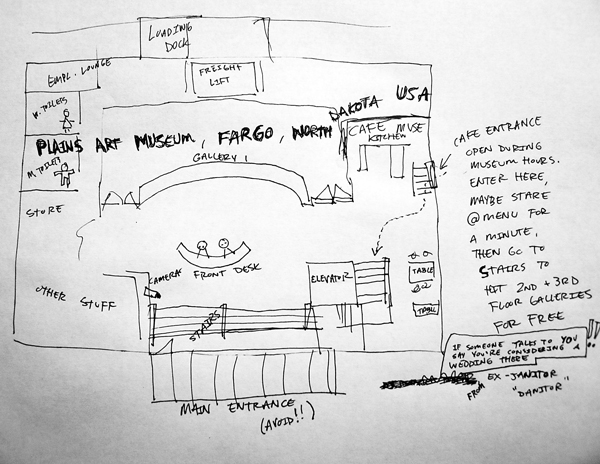 LOADING
DOCK
EMPL. LOUNGE
FREIGHT
LIFT
W. TOILETS
DAKOTA USA
PLAINS ART MUSEUM, FARGO, NORTH
CAFE MUSE
KITCHEN
GALLERY 1
M. TOILETS
STORE
CAMERAS
FRONT DESK
ELEVATOR
TABLE
TABLE
OTHER STUFF
STAIRS
MAIN ENTRANCE
(AVOID!!)
CAFE ENTRANCE
OPEN DURING
MUSEUM HOURS.
ENTER HERE,
MAYBE STARE
@ MENU FOR
A MINUTE,
THEN GO TO
STAIRS TO
HIT 2ND + 3RD
FLOOR GALLERIES
FOR FREE
IF SOMEONE TALKS TO YOU
SAY YOU'RE CONSIDERING A
WEDDING THERE
!!
FROM EX-JANITOR
"DANITOR"